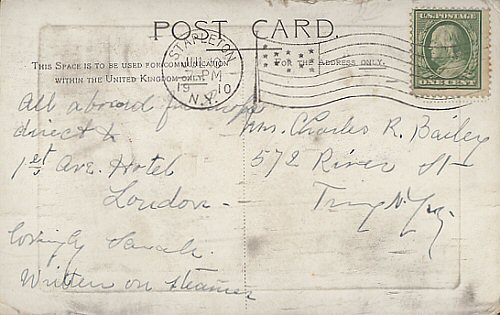 POST CARD.
THIS SPACE IS TO BE USED FOR COMMUNICATION
WITHIN THE UNITED KINGDOM ONLY.
FOR THE ADDRESS ONLY.
STAPLETON
JUL
PM
19 10
N.Y.
U.S. POSTAGE
ONE CENT
All aboard for
direct to
1st Ave. Hotel
London.
lovingly Sarah.
Written on steamer
Mrs. Charles R. Bailey
572 River St
Troy N.Y.